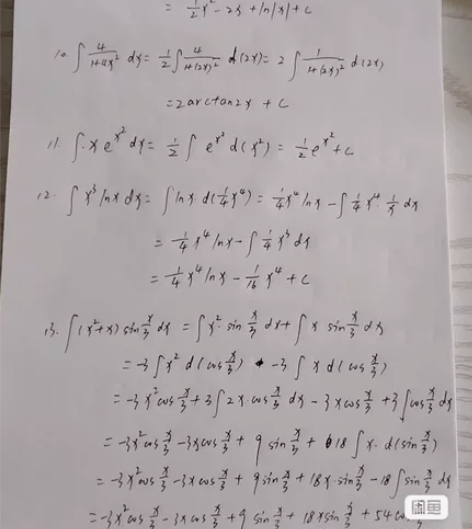 = 1/2 x² - 2x + ln|x| + C
10. ∫ 4/(1+4x²) dx = 1/2 ∫ 4/(1+(2x)²) d(2x) = 2 ∫ 1/(1+(2x)²) d(2x)
= 2 arctan2x + C
11. ∫ x e^(x²) dx = 1/2 ∫ e^(x²) d(x²) = 1/2 e^(x²) + C
12. ∫ x³ ln x dx = ∫ ln x d(1/4 x⁴) = 1/4 x⁴ ln x - ∫ 1/4 x⁴ · 1/x dx
= 1/4 x⁴ ln x - ∫ 1/4 x³ dx
= 1/4 x⁴ ln x - 1/16 x⁴ + C
13. ∫ (x²+x) sin x/3 dx = ∫ x² · sin x/3 dx + ∫ x sin x/3 dx
= -3 ∫ x² d(cos x/3) - 3 ∫ x d(cos x/3)
= -3x² cos x/3 + 3 ∫ 2x · cos x/3 dx - 3x cos x/3 + 3 ∫ cos x/3 dx
= -3x² cos x/3 - 3x cos x/3 + 9 sin x/3 + 18 ∫ x · d(sin x/3)
= -3x² cos x/3 - 3x cos x/3 + 9 sin x/3 + 18x · sin x/3 - 18 ∫ sin x/3 dx
= -3x² cos x/3 - 3x cos x/3 + 9 sin x/3 + 18x sin x/3 + 54